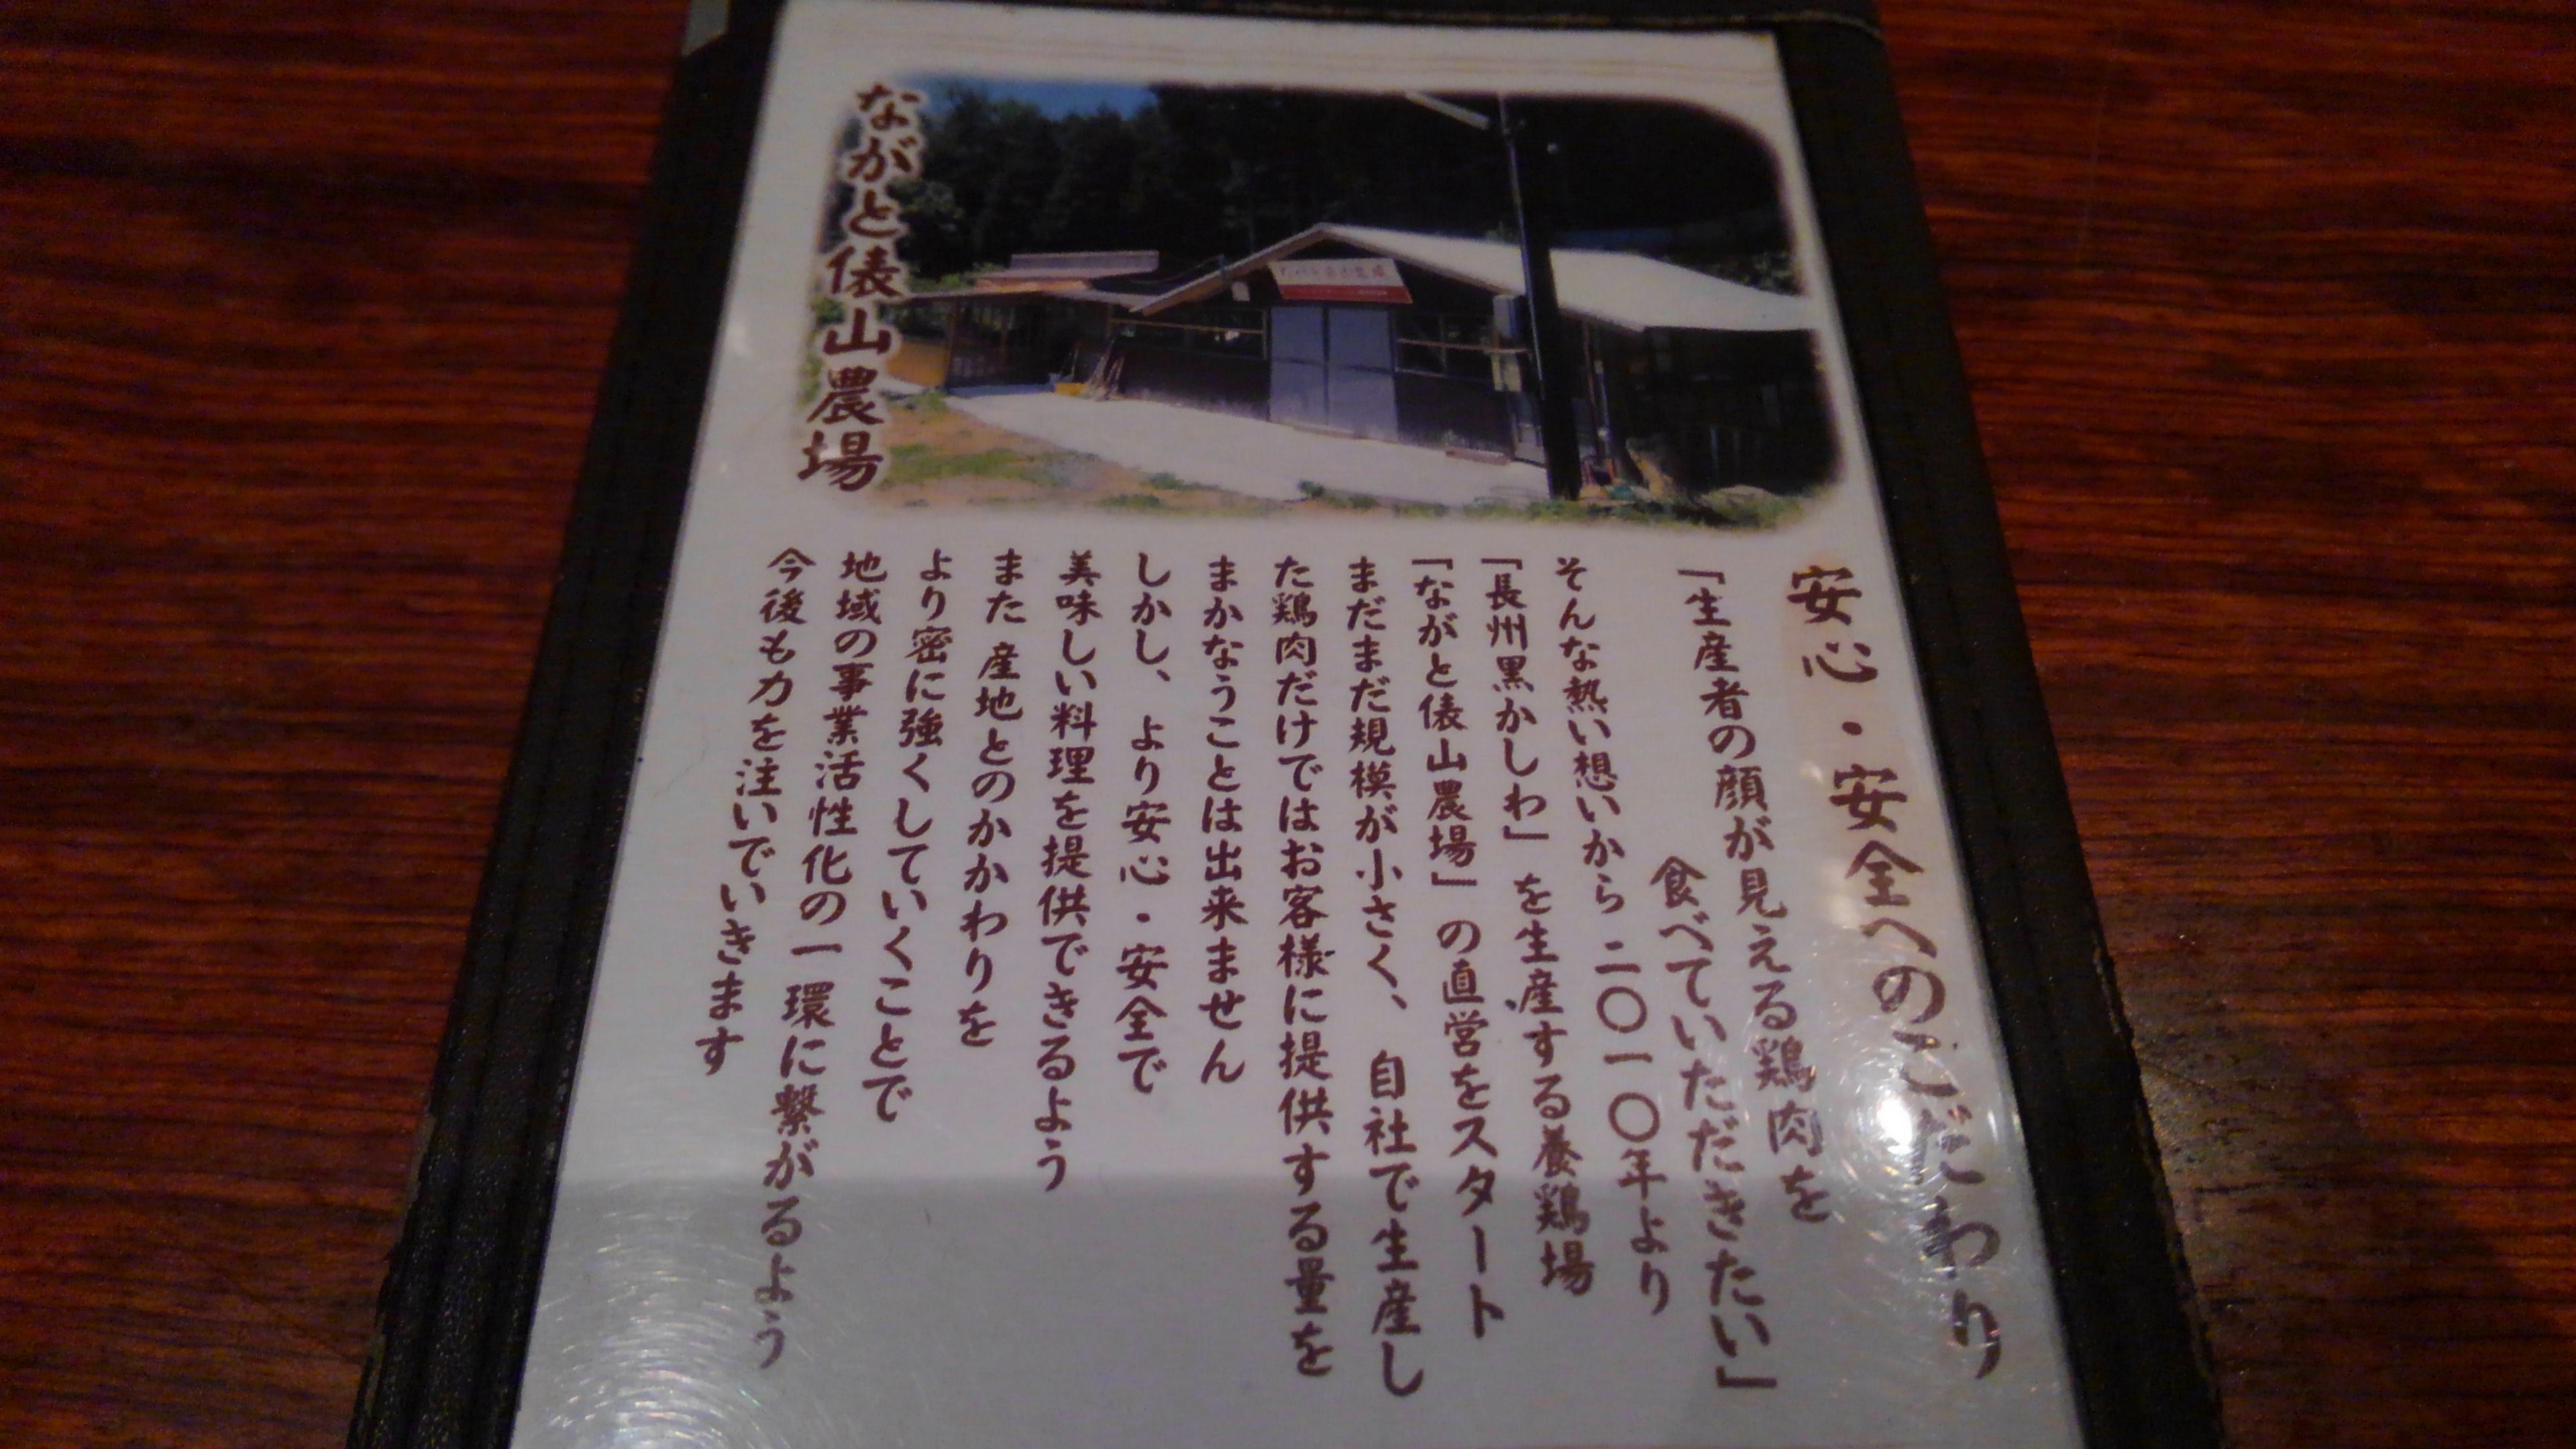 安心・安全へのこだわり
「生産者の顔が見える鶏肉を
食べていただきたい」
そんな熱い想いから 二〇一〇年より
「長州黒かしわ」を生産する養鶏場
「ながと俵山農場」の直営をスタート
まだまだ規模が小さく、自社で生産し
た鶏肉だけではお客様に提供する量を
まかなうことは出来ません
しかし、より安心・安全で
美味しい料理を提供できるよう
また 産地とのかかわりを
より密に強くしていくことで
地域の事業活性化の一環に繋がるよう
今後も力を注いでいきます
ながと俵山農場